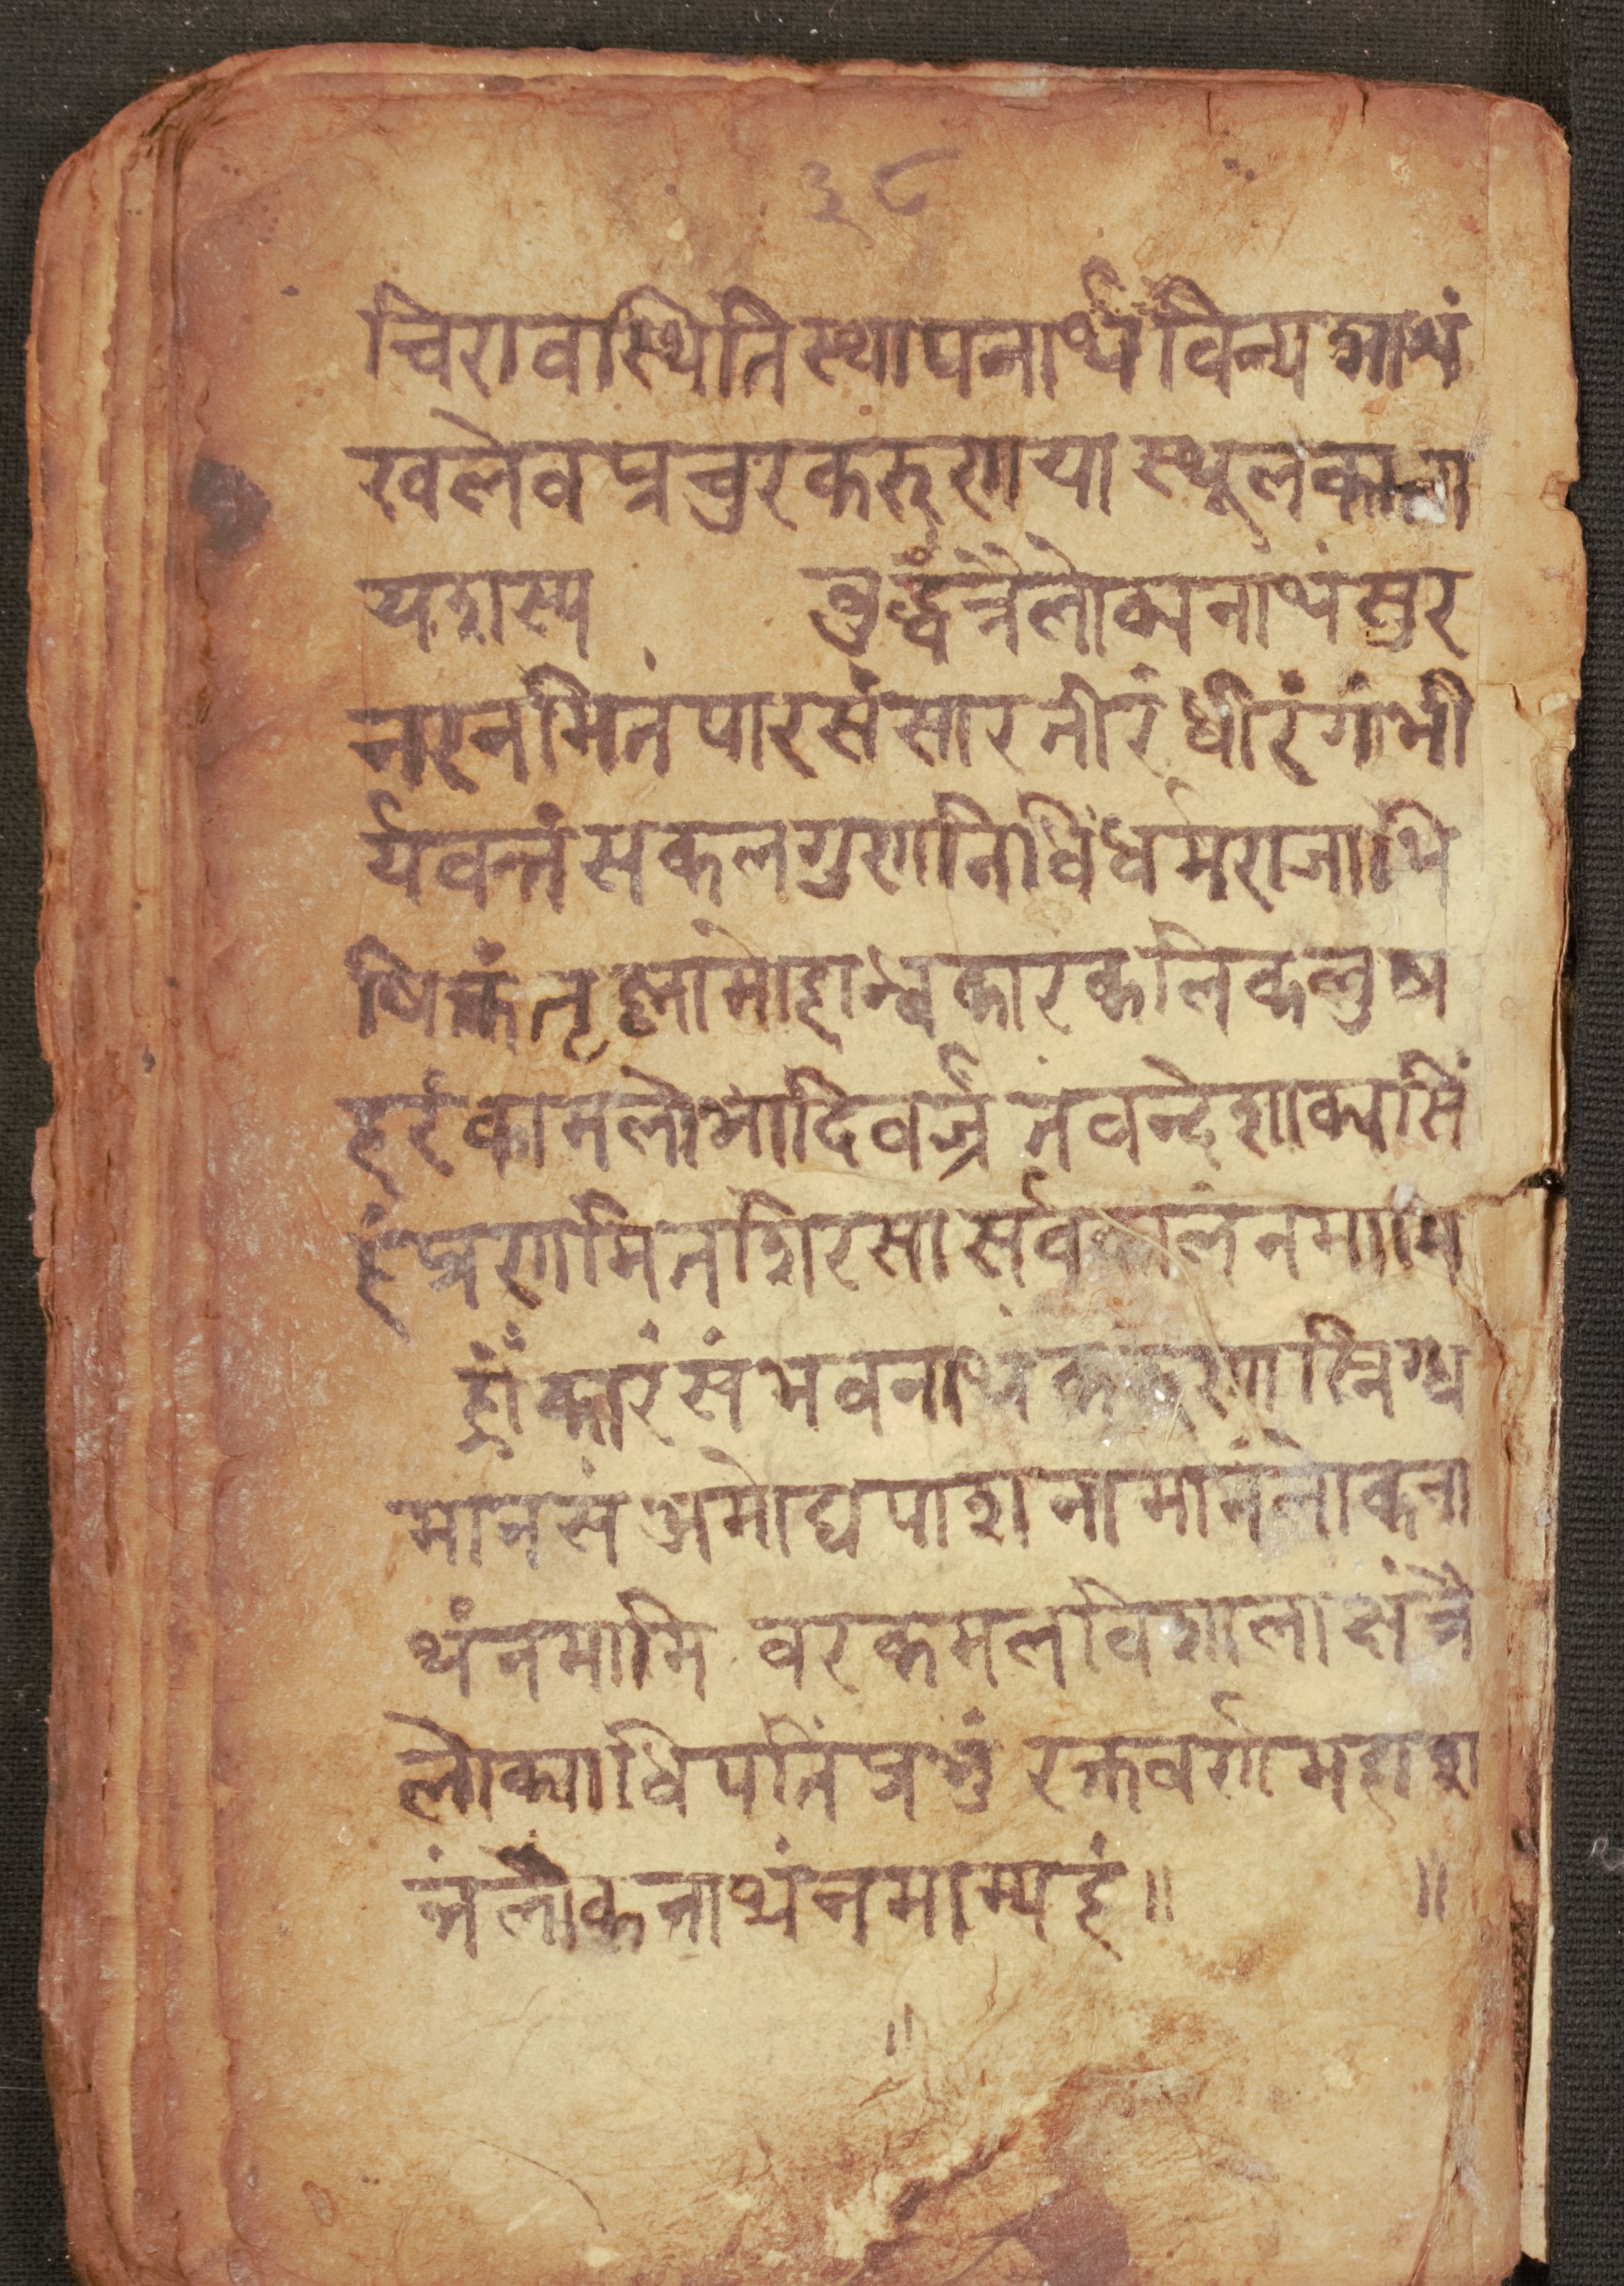 ३८
चिरावस्थितिस्थापनार्थंविन्यभाथं
खलेवप्रचुरकरुणया स्थूलका
यशस्य बुद्धंत्रैलोक्यनाथंसुर
नरनमितंपारसंसारनीरंधीरंगंभी
र्यवन्तंसकलगुणनिधिंधर्मराजाभि
षिक्तंतृष्णामोहान्धकारकलिकलुष
हरंकामलोभादिवर्ज्रंतंवन्देशाक्यसिं
हंप्रणमितशिरसा सर्वकालंनमामि
ह्रींकारंसंभवनाथंकरुणास्निग्ध
मानसंअमोघपाशनामानंलोकना
थंनमामि वरकमलविशालाक्षंत्रै
लोक्याधिपतिंप्रभुं रक्तवर्णमहाशा
न्तंलोकनाथंनमाम्यहं॥ ॥
॥